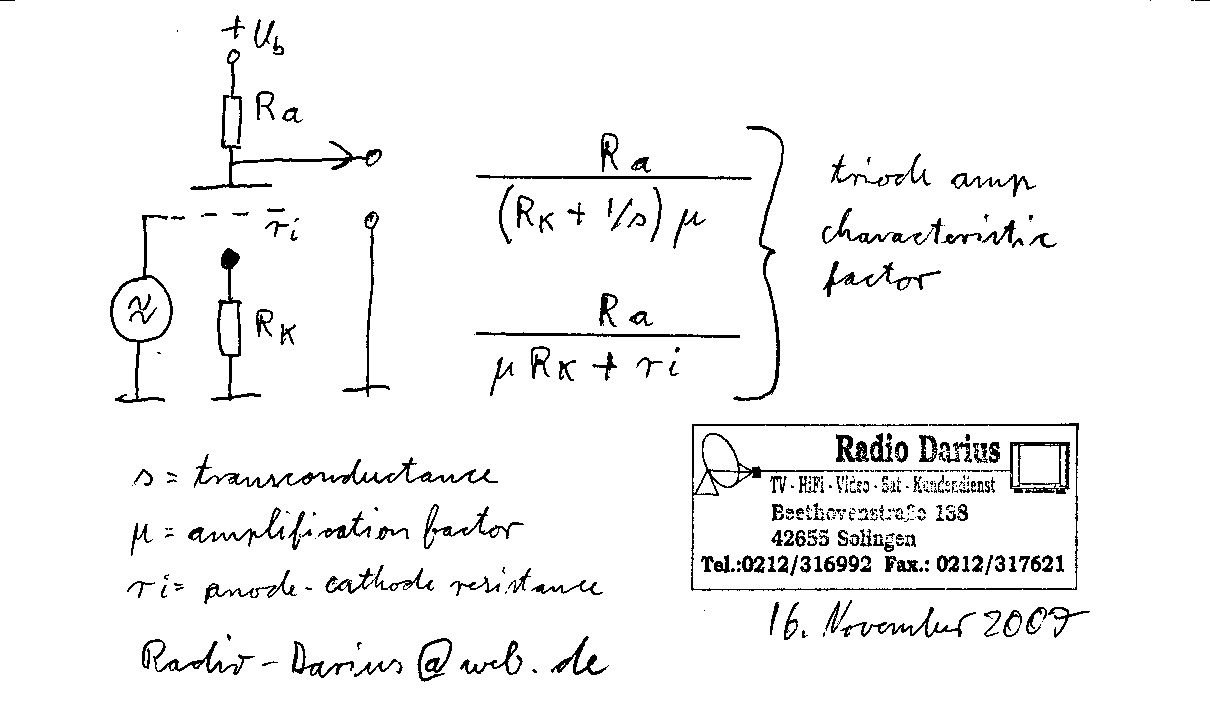 + Ub
Ra
ri
RK
≈
Ra
(RK + 1/s) μ
Ra
μ RK + ri
triode amp
characteristic
factor
s = transconductance
μ = amplification factor
ri = anode-cathode resistance
Radio-Darius@web.de
Radio Darius
TV - HiFi - Video - Sat - Kundendienst
Beethovenstraße 138
42655 Solingen
Tel.:0212/316992 Fax.: 0212/317621
16. November 2007